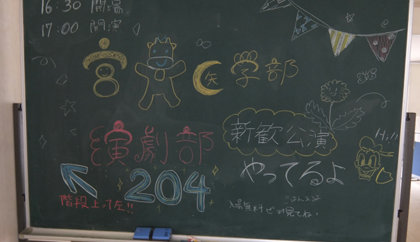 16:30 開場
17:00 開演
宮 医 学部
演劇部
新歓公演
やってるよ
204
階段上って左!!
入場無料
見てね!